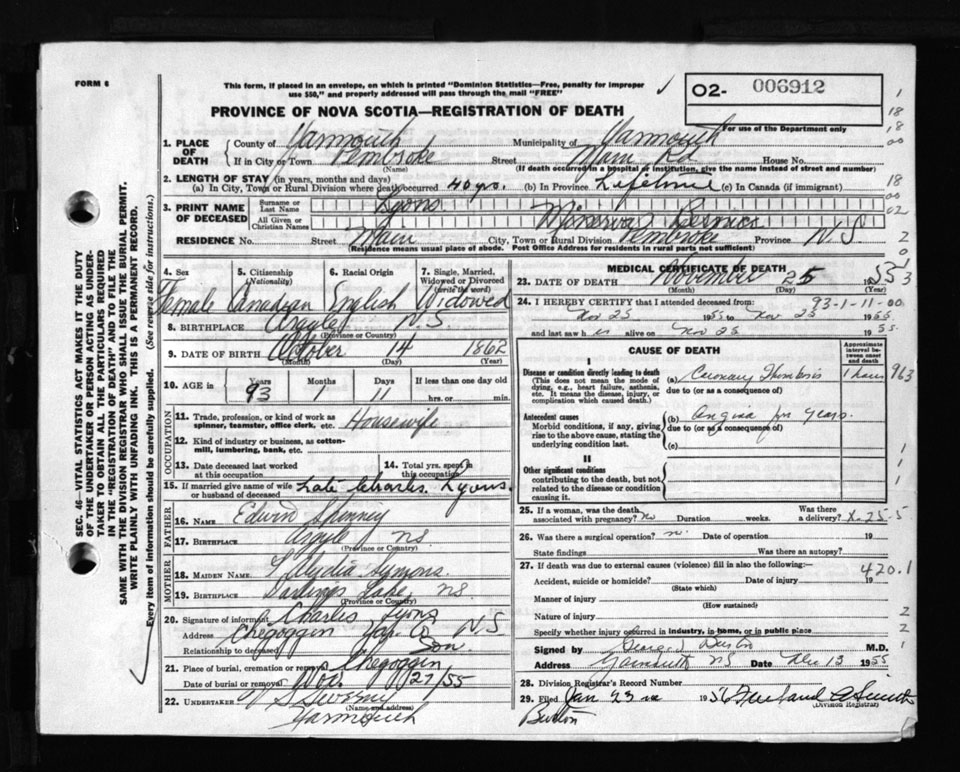 FORM 6
This form, if placed in an envelope, on which is printed "Dominion Statistics—Free, penalty for improper
use $50," and properly addressed will pass through the mail "FREE"
O2- 006912
PROVINCE OF NOVA SCOTIA—REGISTRATION OF DEATH
For use of the Department only
1. PLACE OF DEATH County of Yarmouth Municipality of Yarmouth
If in City or Town Pembroke (Name) Street Main Rd House No.
(If death occurred in a hospital or institution, give name instead of street and number)
2. LENGTH OF STAY (in years, months and days)
(a) In City, Town or Rural Division where death occurred 40 yrs. (b) In Province Lifetime (c) In Canada (if immigrant)
3. PRINT NAME OF DECEASED Surname or Last Name Lyons
All Given or Christian Names Minerva
RESIDENCE No. Street Main City, Town or Rural Division Pembroke Province N.S
(Residence means usual place of abode. Post Office Address for residents in rural parts not sufficient)
4. Sex Female
5. Citizenship (Nationality) Canadian
6. Racial Origin English
7. Single, Married, Widowed or Divorced (write the word) Widowed
8. BIRTHPLACE Argyle N.S. (Province or Country)
9. DATE OF BIRTH October (Month) 14 (Day) 1862 (Year)
10. AGE in Years 93 Months 1 Days 11 If less than one day old hrs. or min.
OCCUPATION
11. Trade, profession, or kind of work as spinner, teamster, office clerk, etc. Housewife
12. Kind of industry or business, as cotton-mill, lumbering, bank, etc.
13. Date deceased last worked at this occupation
14. Total yrs. spent in this occupation
15. If married give name of wife or husband of deceased Late Charles Lyons.
FATHER
16. NAME Edwin Spinney
17. BIRTHPLACE Argyle NS (Province or Country)
MOTHER
18. MAIDEN NAME Lydia Symons
19. BIRTHPLACE Darlings Lake, NS. (Province or Country)
20. Signature of informant Charles Lyons
Address Chegoggin Yar. Co NS
Relationship to deceased Son.
21. Place of burial, cremation or removal Chegoggin
Date of burial or removal Nov. 27/55
22. UNDERTAKER Sweeny (Name and address)
Yarmouth
MEDICAL CERTIFICATE OF DEATH
23. DATE OF DEATH November (Month) 25 (Day) (Year)
93-1-11-00
24. I HEREBY CERTIFY that I attended deceased from:
Nov 25 1955 to Nov 25 1955
and last saw her alive on Nov 25 1955.
CAUSE OF DEATH
Approximate interval between onset and death
I
Disease or condition directly leading to death (a) Coronary Thrombosis 1 hour 963
(This does not mean the mode of dying, e.g., heart failure, asthenia, etc. It means the disease, injury, or complication which caused death.)
due to (or as a consequence of)
Antecedent causes (b) Angina for years.
Morbid conditions, if any, giving rise to the above cause, stating the underlying condition last.
due to (or as a consequence of)
(c)
II
Other significant conditions contributing to the death, but not related to the disease or condition causing it.
25. If a woman, was the death associated with pregnancy? no Duration weeks. Was there a delivery? X-25-5
26. Was there a surgical operation? no. Date of operation 19
State findings Was there an autopsy?
27. If death was due to external causes (violence) fill in also the following: 420.1
Accident, suicide or homicide? (State which) Date of injury 19
Manner of injury (How sustained)
Nature of injury
Specify whether injury occurred in industry, in home, or in public place
Signed by M.D.
Address Yarmouth NS Date Dec 13 1955
28. Division Registrar's Record Number
29. Filed Jan 23 1956 (Division Registrar)
SEC. 46—VITAL STATISTICS ACT MAKES IT THE DUTY
OF THE UNDERTAKER OR PERSON ACTING AS UNDER-
TAKER TO OBTAIN ALL THE PARTICULARS REQUIRED
IN THE "REGISTRATION OF DEATH" AND TO FILE THE
SAME WITH THE DIVISION REGISTRAR WHO SHALL ISSUE THE BURIAL PERMIT.
WRITE PLAINLY WITH UNFADING INK. THIS IS A PERMANENT RECORD.
Every item of information should be carefully supplied. (See reverse side for instructions.)